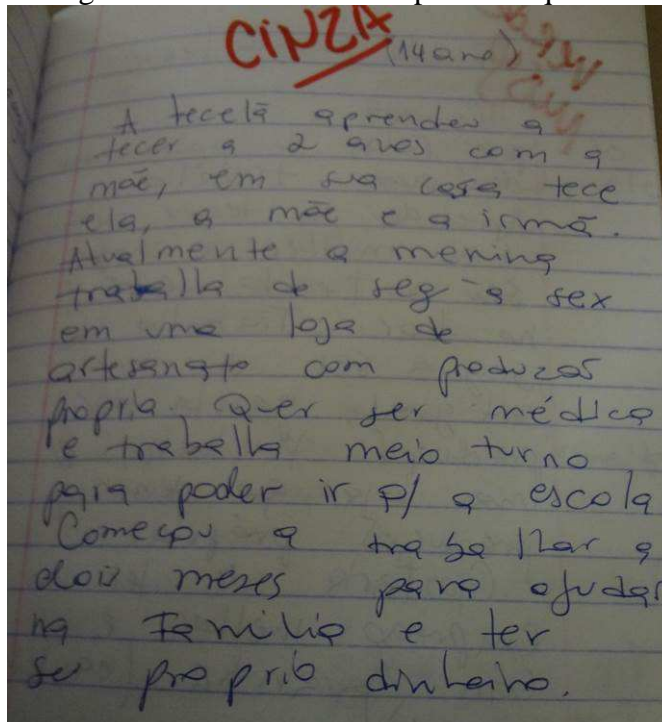 CINZA
(14 ano)
A tecelã aprendeu a
tecer a 2 anos com a
mãe, em sua casa tece
ela, a mãe e a irmã.
Atualmente a menina
traballa de seg a sex
em uma loja de
artesanato com produzos
propria. Quer ser médica
e traballa meio turno
para poder ir p/ a escola
Começou a traballar a
dois meses para ajudar
na familia e ter
seu proprio dinheiro.